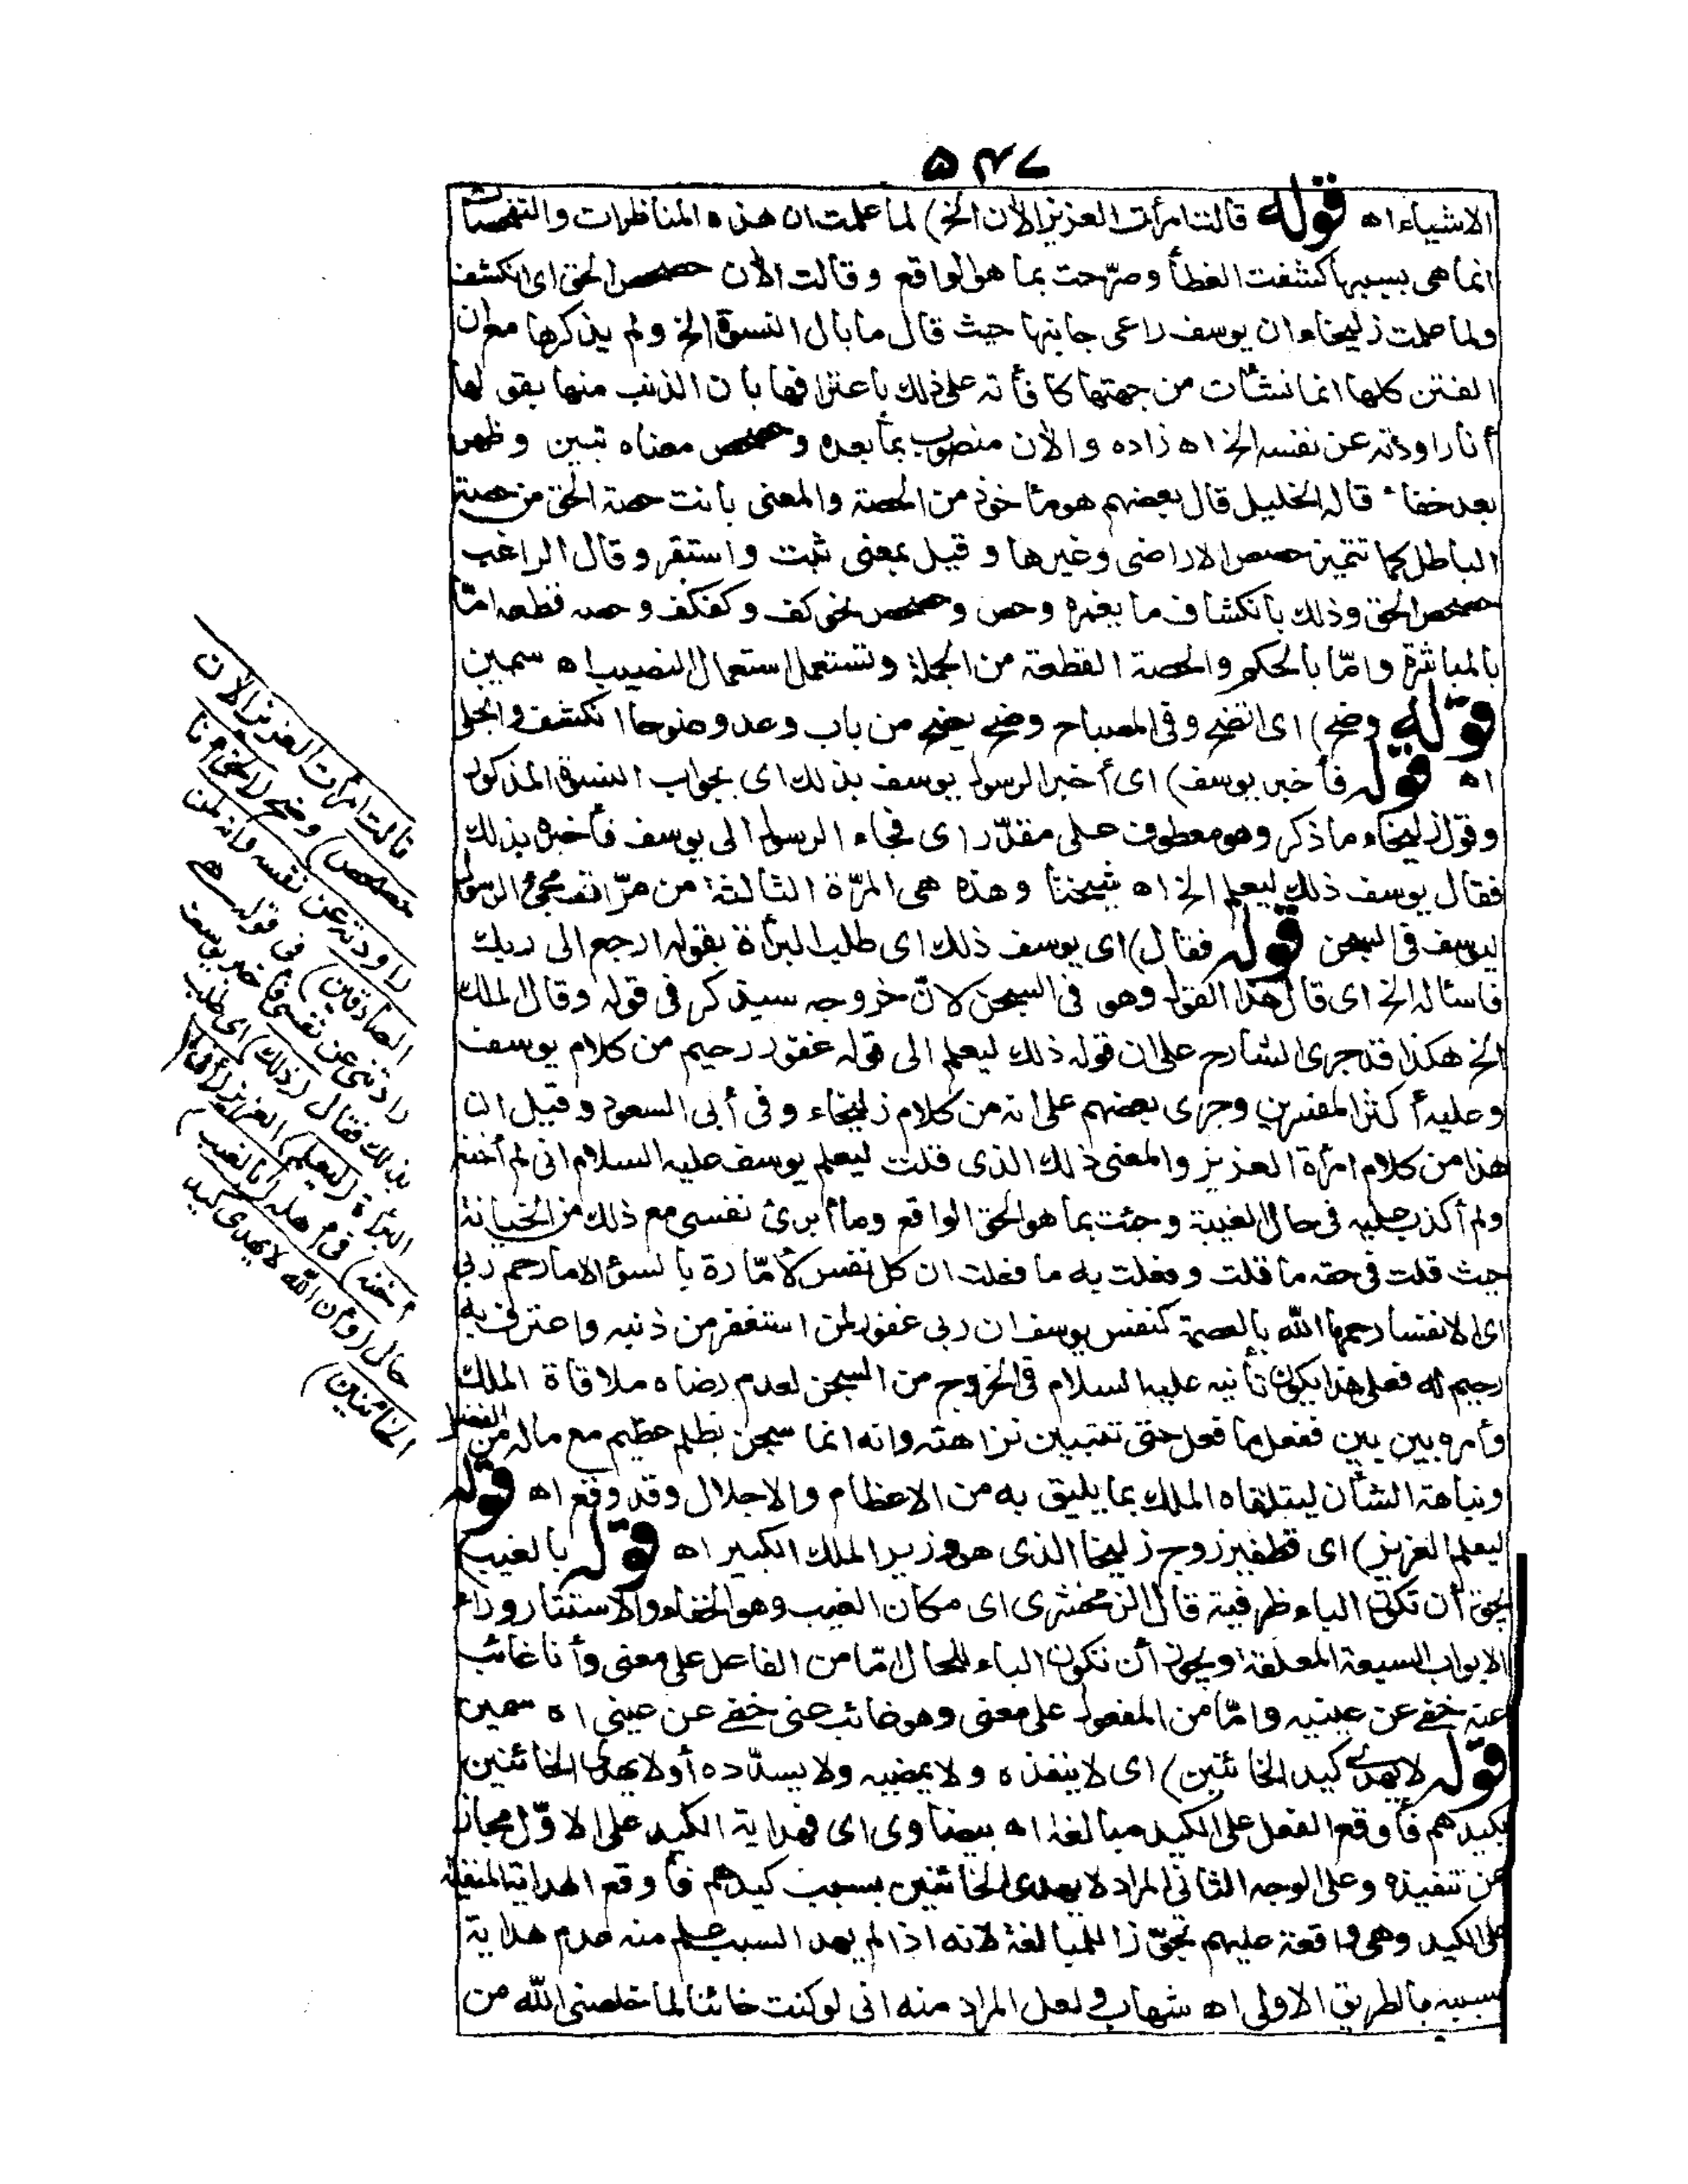 ۵۴۷
الاشياء اه قوله قالت امرأت العزيز الآن الخ) لما علمت ان هذه المناظرات والتفحصات
انما هى بسببها كشفت الغطأ وصرّحت بما هو الواقع وقالت الآن حصحص الحق اى انكشف
ولما علمت زليخاء ان يوسف راعى جانبها حيث قال ما بال النسوة الخ ولم يذكرها مع ان
الفتن كلها انما نشأت من جهتها كافأته على ذلك باعترافها بان الذنب منها بقولها
أنا راودته عن نفسه الخ اه زاده والآن منصوب بما بعده وحصحص معناه تبين وظهر
بعد خفاء قاله الخليل قال بعضهم هو مأخوذ من الحصة والمعنى بانت حصة الحق من حصة
الباطل كما تتميز حصص الاراضى وغيرها وقيل بمعنى ثبت واستقر وقال الراغب
حصحص الحق وذلك بانكشاف ما يغمره وحص وحصحص نحو كف وكفكف وحصه قطعه امّا
بالمباشرة وامّا بالحكم والحصة القطعة من الجملة وتستعمل استعمال النصيب اه سمين
قوله وضح) اى اتضح وفى المصباح وضح يضح من باب وعد وضوحا انكشف وانجلى
اه قوله فأخبر يوسف) اى أخبر الرسول يوسف بذلك اى بجواب النسوة المذكور
وقول زليخاء ما ذكر وهو معطوف على مقدّر اى فجاء الرسول الى يوسف فأخبره بذلك
فقال يوسف ذلك ليعلم الخ اه شيخنا وهذه هى المرّة الثالثة من مرّات مجئ الرسول
ليوسف فى السجن قوله فقال) اى يوسف ذلك اى طلب البرأة بقوله ارجع الى ربك
فاسئاله الخ اى قال هذا القول وهو فى السجن لانّ خروجه سيذكر فى قوله وقال الملك
الخ هكذا قد جرى الشارح على ان قوله ذلك ليعلم الى قوله غفور رحيم من كلام يوسف
وعليه أكثر المفسرين وجرى بعضهم على انه من كلام زليخاء وفى أبى السعود وقيل ان
هذا من كلام امرأة العزيز والمعنى ذلك الذى قلت ليعلم يوسف عليه السلام انى لم أخنه
ولم أكذب عليه فى حال الغيبة وجئت بما هو الحق الواقع وما أبرئ نفسى مع ذلك من الخيانة
حيث قلت فى حقه ما قلت وفعلت به ما فعلت ان كل نفس لأمّارة بالسوء الا ما رحم ربى
اى الا نفسا رحمها الله بالعصمة كنفس يوسف ان ربى غفور لمن استغفر من ذنبه واعترف به
رحيم له فعلى هذا يكون تأنيه عليه السلام فى الخروج من السجن لعدم رضاه ملاقاة الملك
وأمره بين بين ففعل ما فعل حتى تتبين نزاهته وانه انما سجن بظلم عظيم مع ماله من الفضل
ونباهة الشأن ليتلقاه الملك بما يليق به من الاعظام والاجلال وقد وقع اه قوله
ليعلم العزيز) اى قطفير زوج زليخا الذى هو وزير الملك الكبير اه قوله بالغيب)
يجوز أن تكون الباء ظرفية قال الزمخشرى اى مكان الغيب وهو الخفاء والاستتار وراء
الابواب السبعة المعلقة ويجوز أن تكون الباء للحال امّا من الفاعل على معنى وأنا غائب
عنه خفى عن عينيه وامّا من المفعول على معنى وهو غائب عنى خفى عن عينى اه سمين
قوله لا يهدى كيد الخائنين) اى لا ينفذه ولا يمضيه ولا يسدّده أو لا يهدى الخائنين
بكيدهم فأوقع الفعل على الكيد مبالغة اه بيضاوى اى فهداية الكيد على الاوّل مجاز
عن تنفيذه وعلى الوجه الثانى المراد لا يهدى الخائنين بسبب كيدهم فأوقع الهداية المنفية
على الكيد وهى واقعة عليهم تجوّزا للمبالغة لانه اذا لم يهد السبب علم منه عدم هداية
سببه بالطريق الاولى اه شهاب ولعل المراد منه انى لو كنت خائنا لما خلصنى الله من
قالت امرأت العزيز الآن
حصحص) وضح (الحق أنا
راودته عن نفسه وانه لمن
الصادقين) فى قوله هى
راودتنى عن نفسى فأخبر يوسف
بذلك فقال (ذلك) اى طلب
البرأة (ليعلم) العزيز (أنى لم
أخنه) فى أهله (بالغيب)
حال (وأن الله لا يهدى كيد
الخائنين)